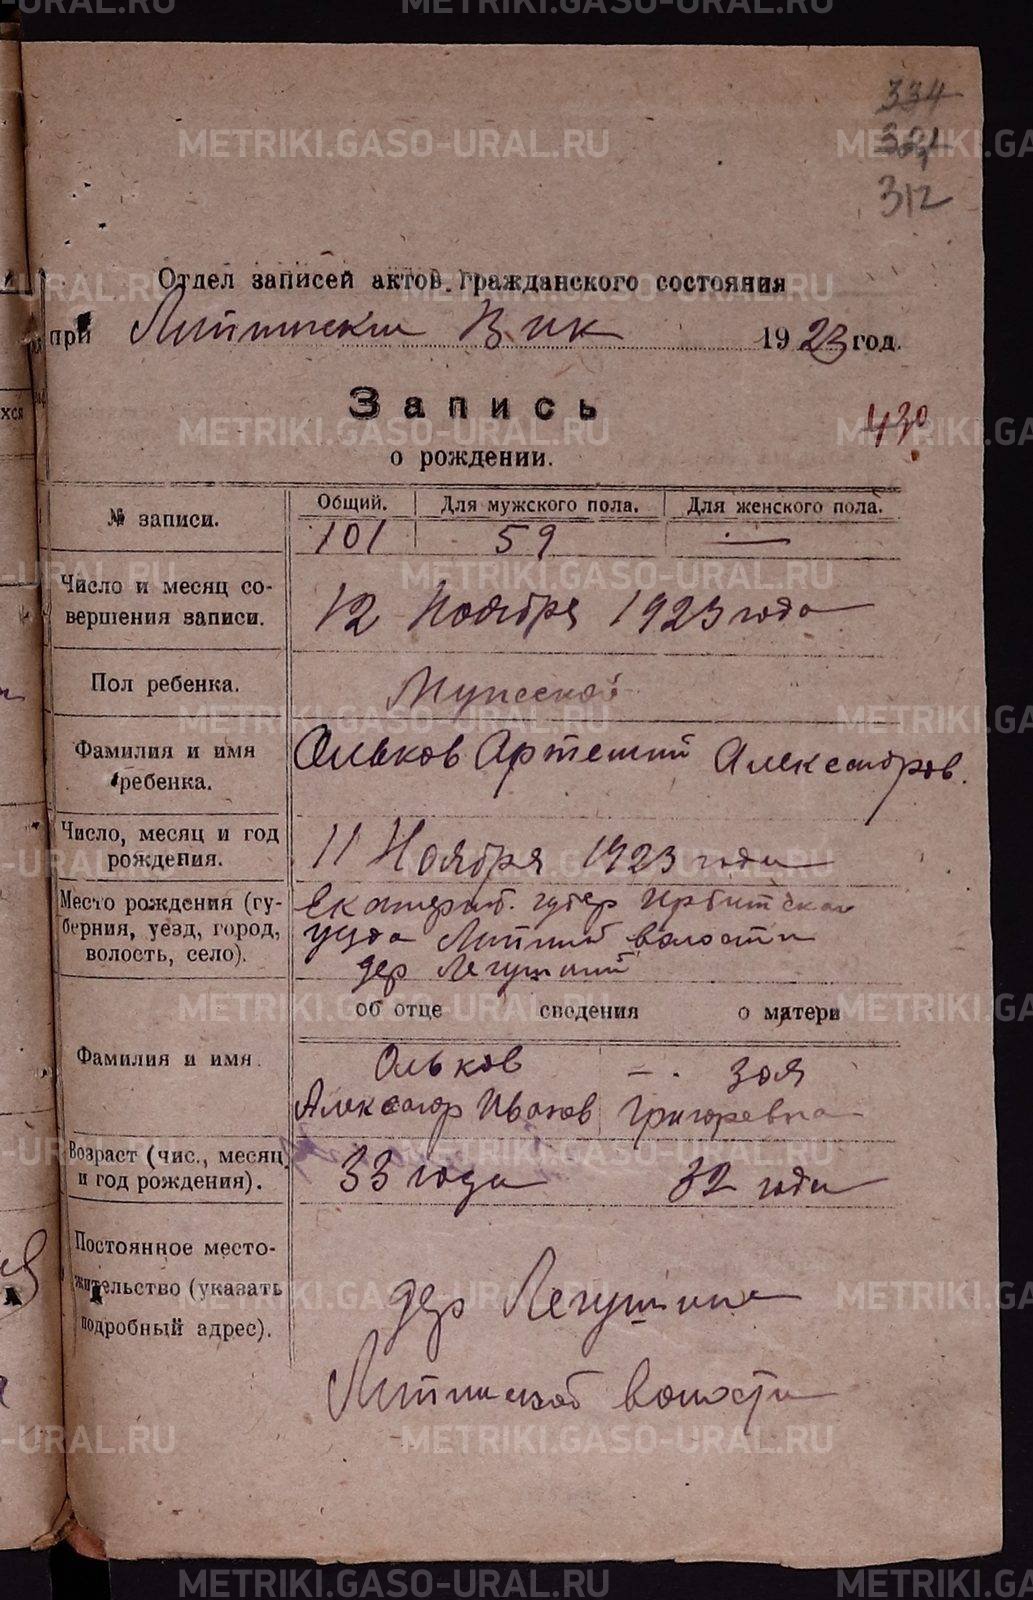 334
304
312
Отдел записей актов гражданского состояния
при Липинском Вик 1923 год.
Запись
430
о рождении.
№ записи.
Общий. Для мужского пола. Для женского пола.
101 59 —
Число и месяц со-
вершения записи.
12 Ноября 1923 года
Пол ребенка.
Мужской
Фамилия и имя
ребенка.
Ольков Артемий Александров.
Число, месяц и год
рождения.
11 Ноября 1923 года
Место рождения (гу-
берния, уезд, город,
волость, село).
Екатеринб. губер Ирбитскаго
уезда волости
дер
об отце сведения о матери
Фамилия и имя.
Ольков — . Зоя
Александр Иванов Григоревна
Возраст (чис., месяц
и год рождения).
33 года 32 года
Постоянное место-
жительство (указать
подробный адрес).
дер
волости
METRIKI.GASO-URAL.RU